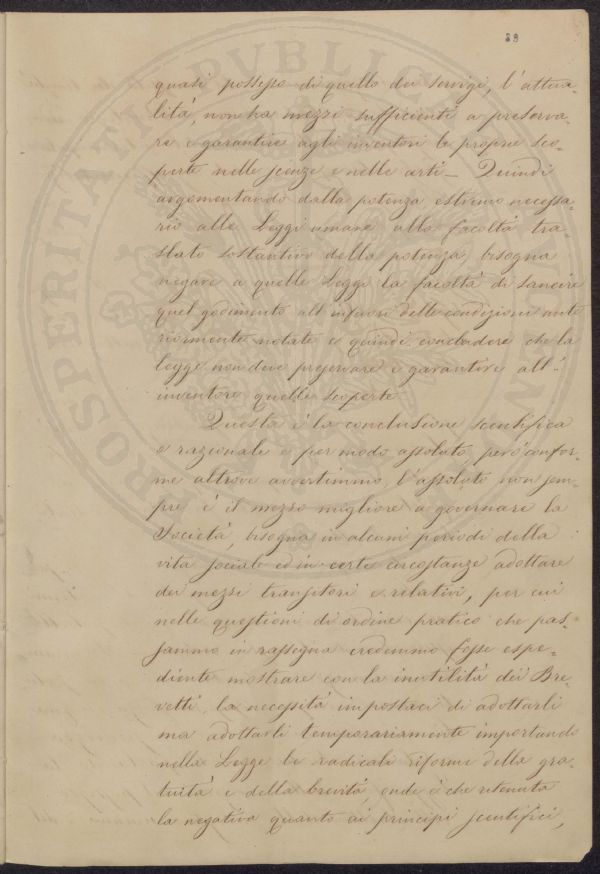 89
quasi possesso di quello dei servigi, l'attua-
lità, non ha mezzi sufficienti a preserva-
re e garantire agli inventori le proprie sco-
perte nelle scienze e nelle arti — Quindi
argomentando dalla potenza estremo necessa-
rio alle Leggi umane alla facoltà tra-
slato sostantivo della potenza, bisogna
negare a quelle Leggi la facoltà di sancire
quel godimento all'infuori delle condizioni ante
riormente notate e quindi concludere che la
legge non deve preservare e garantire all'
inventore quelle scoperte
Questa è la conclusione scentifica
e razionale e per modo assoluto, però confor-
me altrove avvertimmo, l'assoluto non sem-
pre è il mezzo migliore a governare la
Società, bisogna in alcuni periodi della
vita sociale ed in certe circostanze adottare
dei mezzi transitori e relativi, per cui
nelle questioni di ordine pratico che pas-
sammo in rassegna credemmo fosse espe-
diente mostrare con la inutilità dei Bre-
vetti, la necessità impostaci di adottarli
ma adottarli temporariamente importando
nella Legge le radicali riforme della gra-
tuità e della brevità onde è che ritenuta
la negativa quanto ai principi scentifici,
PROSPERITATI PVBLICAE